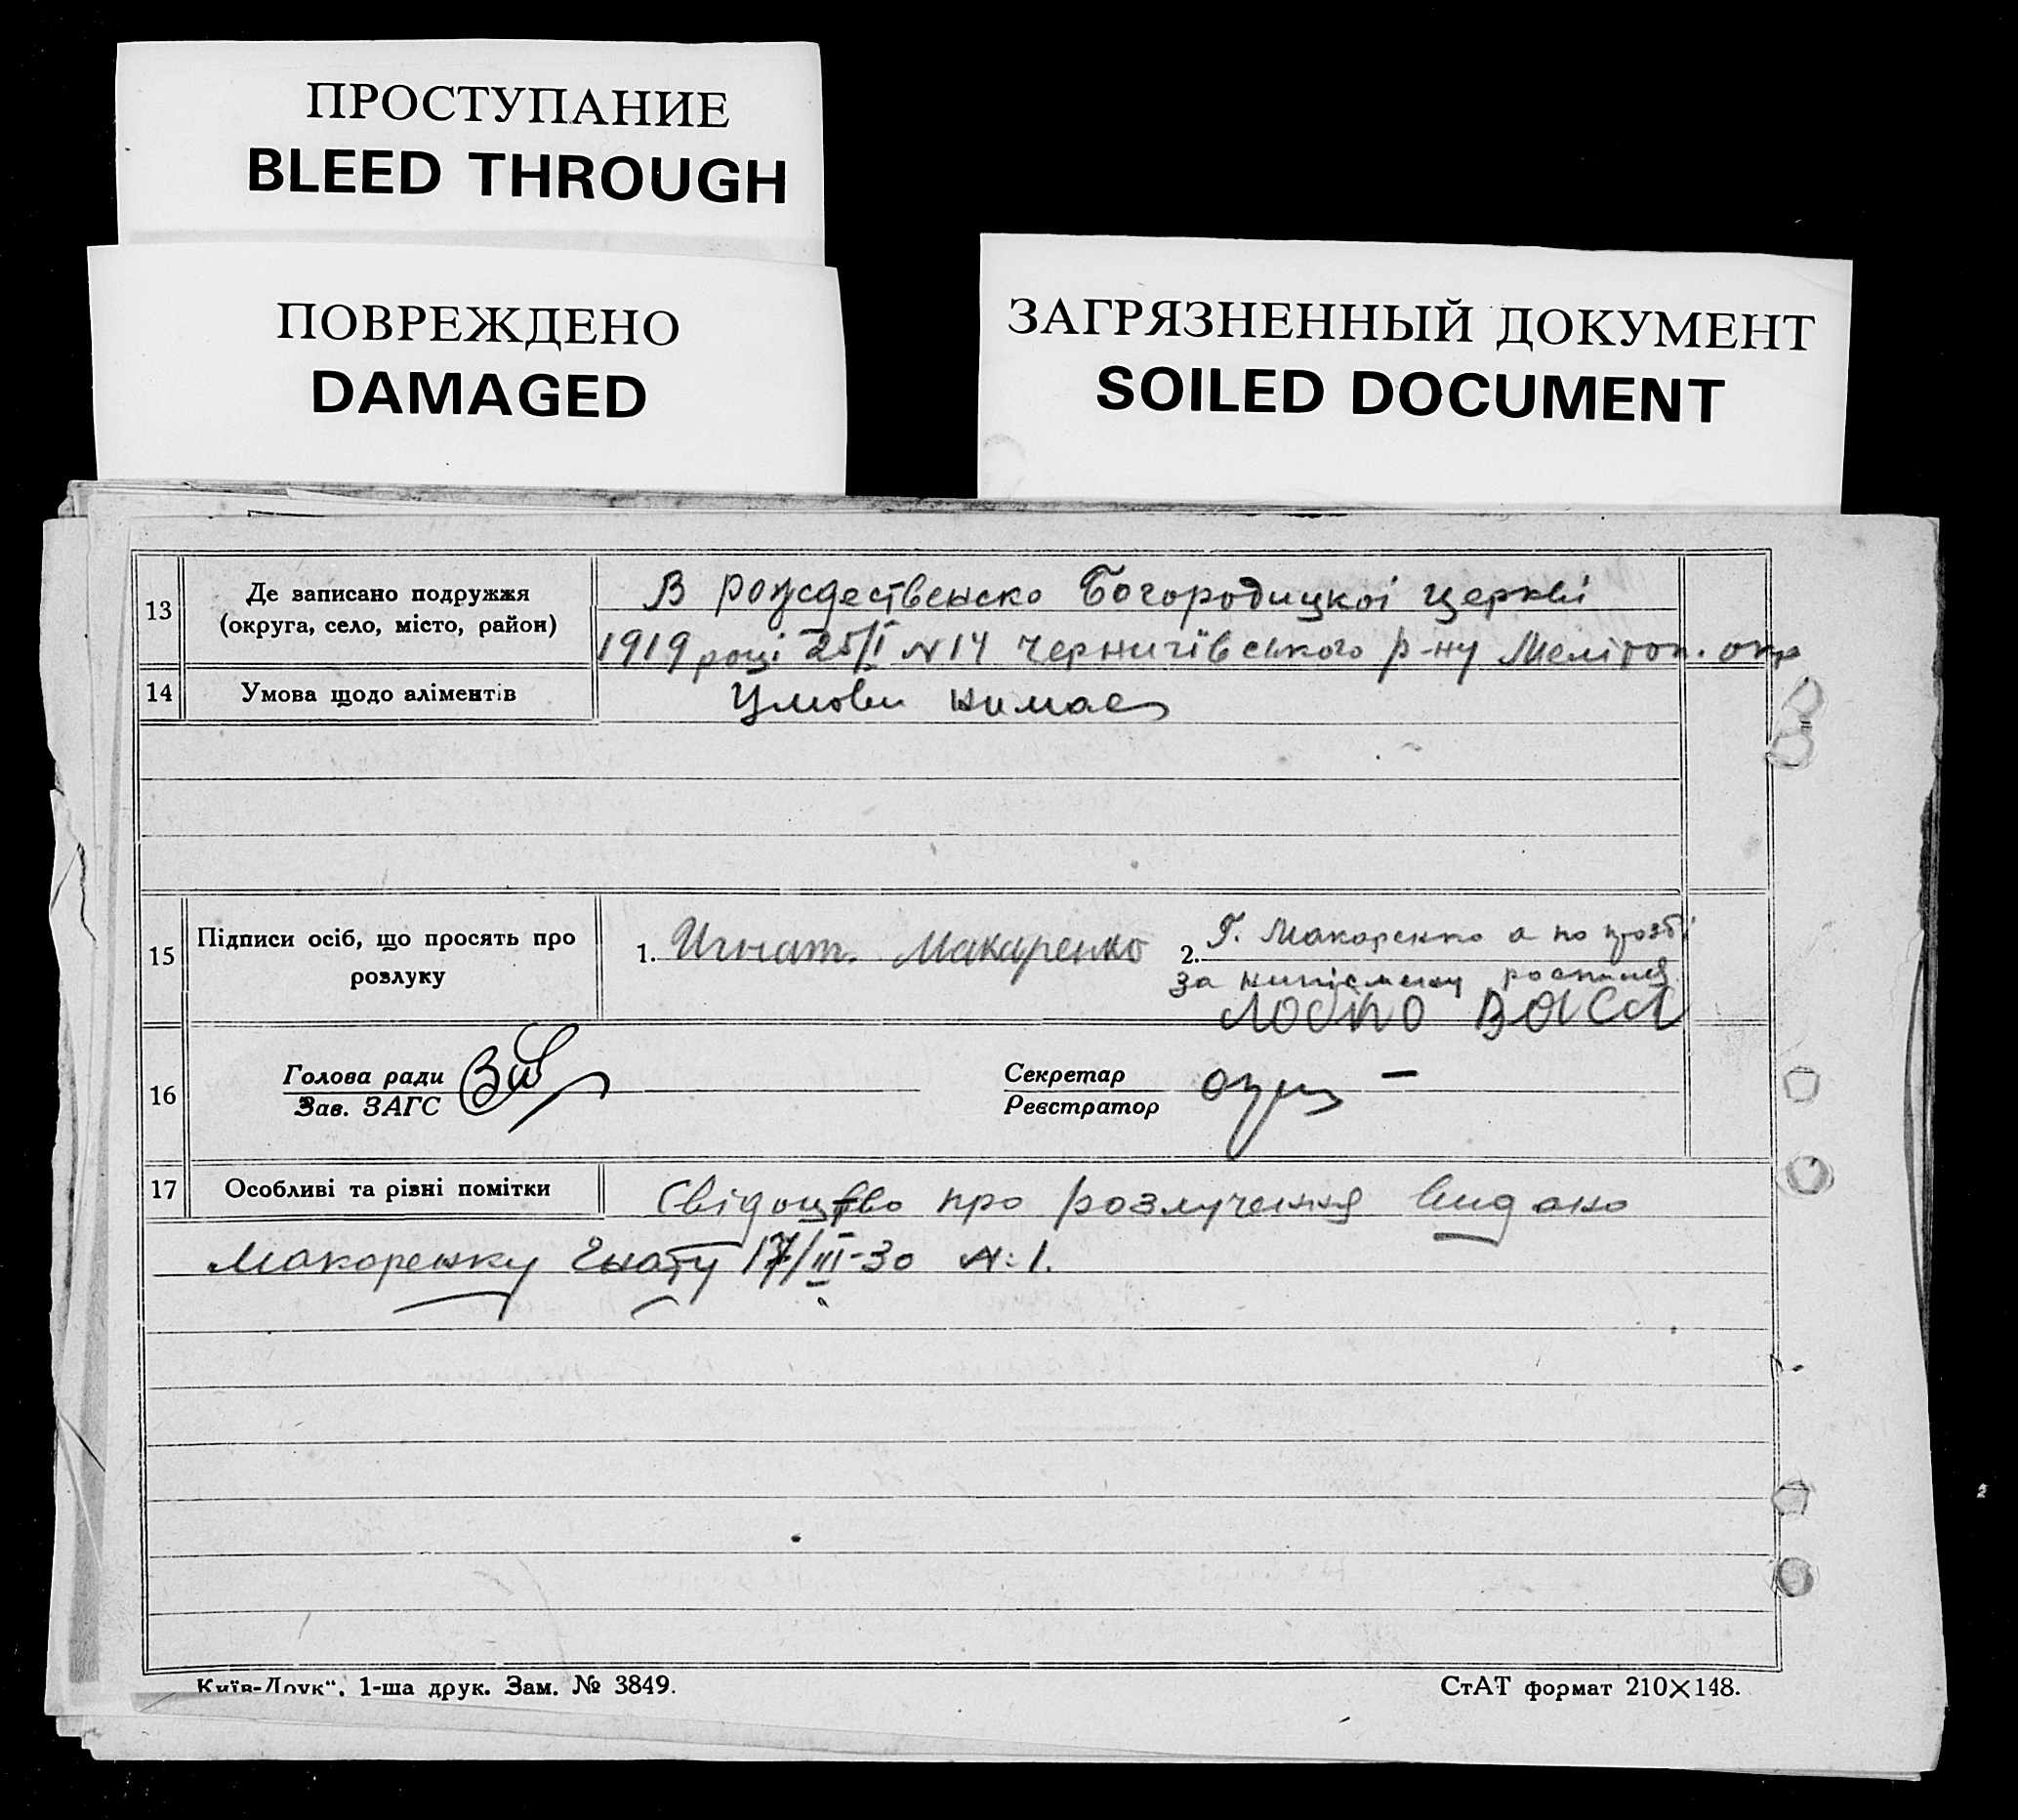 ПРОСТУПАНИЕ
BLEED THROUGH
ПОВРЕЖДЕНО
DAMAGED
ЗАГРЯЗНЕННЫЙ ДОКУМЕНТ
SOILED DOCUMENT
13 Де записано подружжя (округа, село, місто, район)
В рождественско Богородицкоі церкві
1919 році 25/I N14 Чернигівського р-ну Меліτοπ. окр
14 Умова щодо аліментів
Умови нимає
15 Підписи осіб, що просять про розлуку
1. Игнат. Макаренко
2. Г. Макаренко а по прозбі
за нипісмену
Лобко Васи
16 Голова ради
Зав. ЗАГС
Секретар
Реєстратор
17 Особливі та різні помітки
Свідоцтво про розлучення видано
Макоренку Гнату 17/III-30 N: 1.
Київ-Друк“, 1-ша друк. Зам. № 3849.
СтАТ формат 210×148.